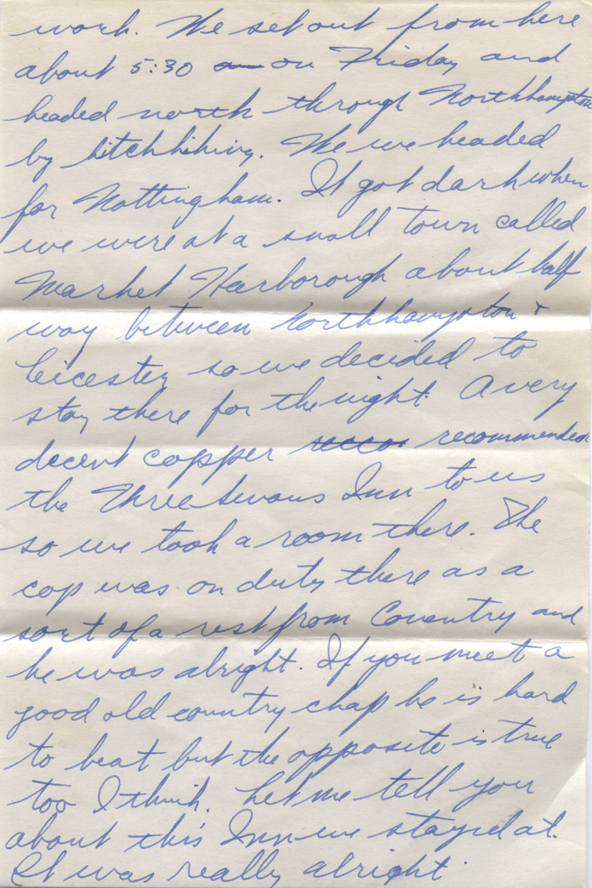 work. We set out from here
about 5:30 on Friday and
headed north through Northhampton
by hitchhiking. We we headed
for Nottingham. It got dark when
we were at a small town called
Market Harborough about half
way between Northhampton &
Leicester so we decided to
stay there for the night. A very
decent copper recommended
the Three Swans Inn to us
so we took a room there. The
cop was on duty there as a
sort of a rest from Coventry and
he was alright. If you meet a
good old country chap he is hard
to beat but the opposite is true
too I think. Let me tell you
about this Inn we stayed at.
It was really alright.